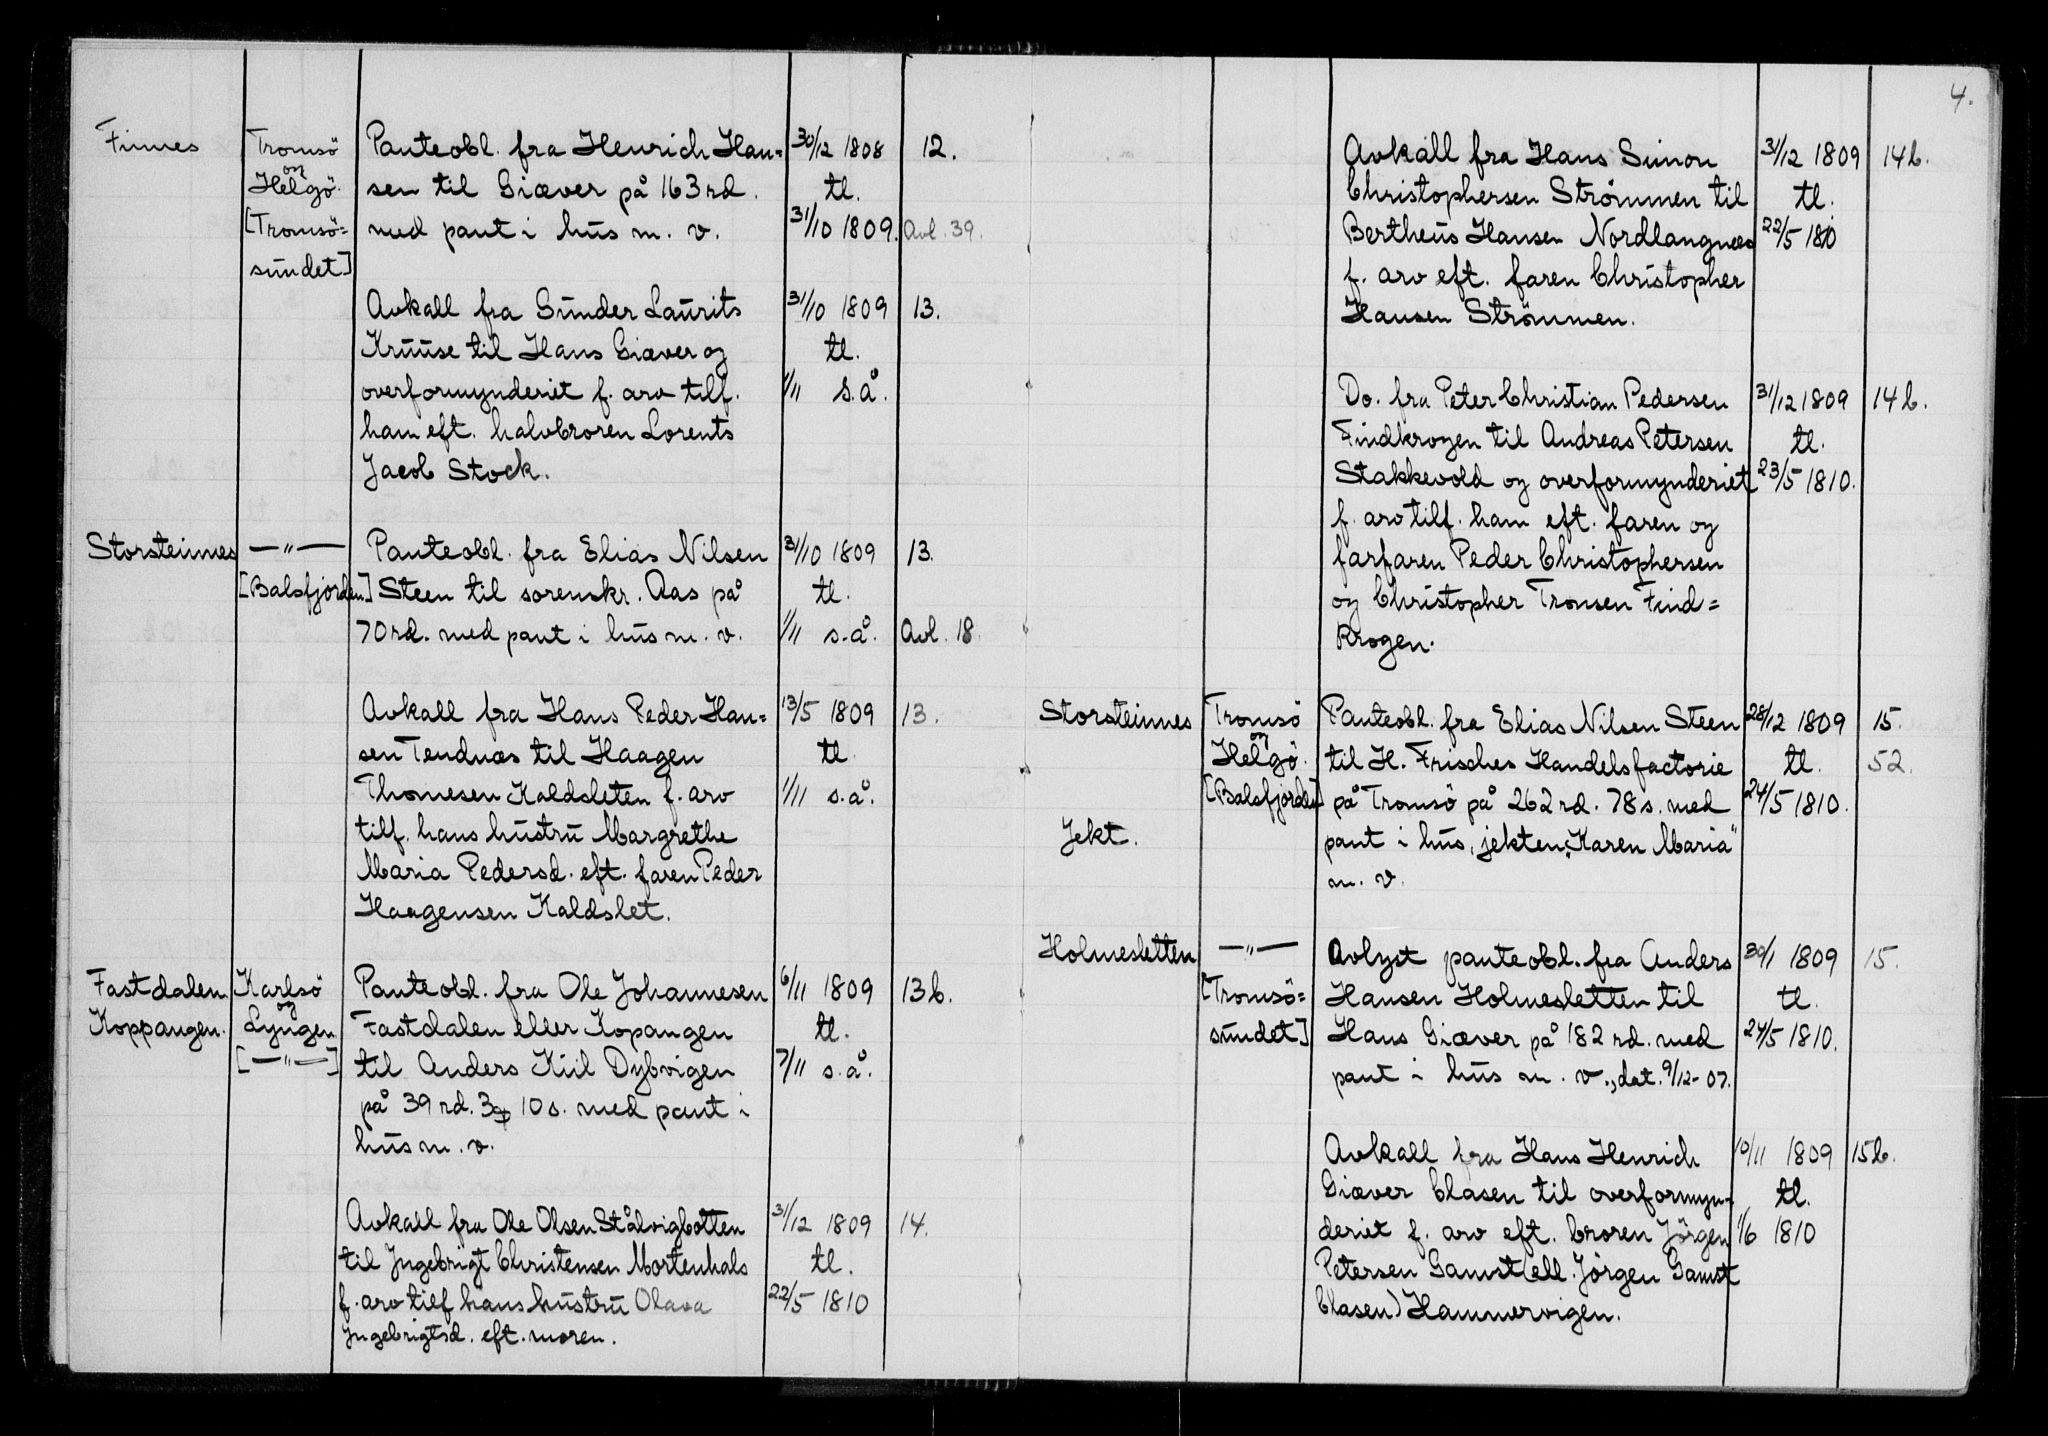 Finnes Tromsö Panteobl. fra Henrich Han= 30/12 1808 12.
og Helgö. sen til Giæver på 163 rd. tl.
[Tromsö= med pant i hus m. v. 31/10 1809. Avl. 39.
sundet]
Avkall fra Gunder Laurits 31/10 1809 13.
Kruuse til Hans Giæver og tl.
overformynderiet f. arv tilf. 1/11 s.å.
ham eft. halvbroren Lorents
Jacob Stock.
Storsteinnes —„— Panteobl. fra Elias Nilsen 31/10 1809 13.
[Balsfjorden] Steen til sorenskr. Aas på tl.
70 rd. med pant i hus m. v. 1/11 s.å. Avl. 18.
Avkall fra Hans Peder Han= 13/5 1809 13.
sen Tendnæs til Haagen tl.
Thomesen Kaldsleten f. arv 1/11 s.å.
tilf. hans hustru Margrethe
Maria Pedersd. eft. faren Peder
Haagensen Kaldslet.
Fastdalen. Karlsö Panteobl. fra Ole Johannesen 6/11 1809 13b.
Koppangen. og Lyngen Fastdalen eller Kopangen tl.
[—„—] til Anders Kiil Dybvigen 7/11 s.å.
på 39 rd. 3 10 s. med pant i
hus m. v.
Avkall fra Ole Olsen Stålvigbotten 31/12 1809 14.
til Jngebrigt Christensen Mortenhals tl.
f. arv tilf hans hustru Olava 22/5 1810
Jngebrigtsd. eft. moren.
4.
Avkall fra Hans Simon 31/12 1809 14b.
Christophersen Strømmen til tl.
Bertheus Hansen Nordlangnæs 22/5 1810
f. arv eft. faren Christopher
Hansen Strömmen.
Do. fra Peter Christian Pedersen 31/12 1809 14b.
Findkrogen til Andreas Petersen tl.
Stakkevold og overformynderiet 23/5 1810.
f. arv tilf. ham eft. faren og
farfaren Peder Christophersen
og Christopher Tronsen Find=
krogen.
Storsteinnes Tromsö Panteobl. fra Elias Nilsen Steen 28/12 1809 15.
og Helgö. til H. Frisches Handelsfactorie tl. 52.
[Balsfjorden] på Tromsö på 262 rd. 78 s. med 24/5 1810.
Jekt. pant i hus, jekten „Karen Maria"
m. v.
Holmesletten —„— Avlyst panteobl. fra Anders 30/1 1809 15.
[Tromsö= Hansen Holmesletten til tl.
sundet] Hans Giæver på 182 rd. med 24/5 1810.
pant i hus m. v., dat. 9/12-07.
Avkall fra Hans Henrich 10/11 1809 15b.
Giæver Clasen til overformyn= tl.
deriet f. arv eft. broren Jörgen 1/6 1810
Petersen Gamst (ell. Jörgen Gamst
Clasen) Hammervigen.